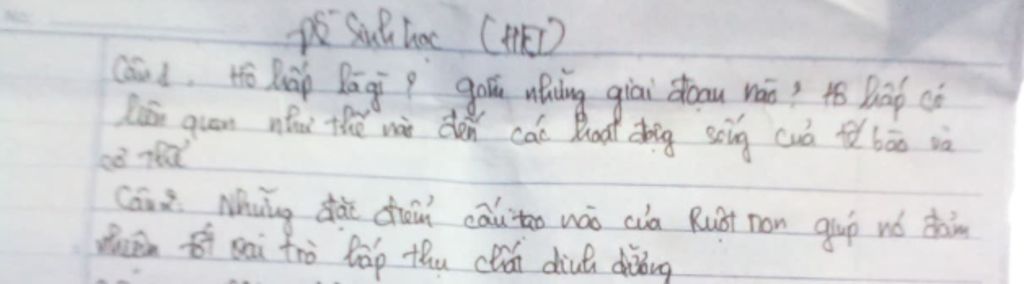 Đề Sinh học (HKI)
Câu 1. Hô hấp là gì? gồm những giai đoạn nào? Hô hấp có
liên quan như thế nào đến các hoạt động sống của tế bào và
cơ thể
Câu 2. Những đặc điểm cấu tạo nào của Ruột non giúp nó đảm
nhiệm tốt vai trò hấp thụ chất dinh dưỡng